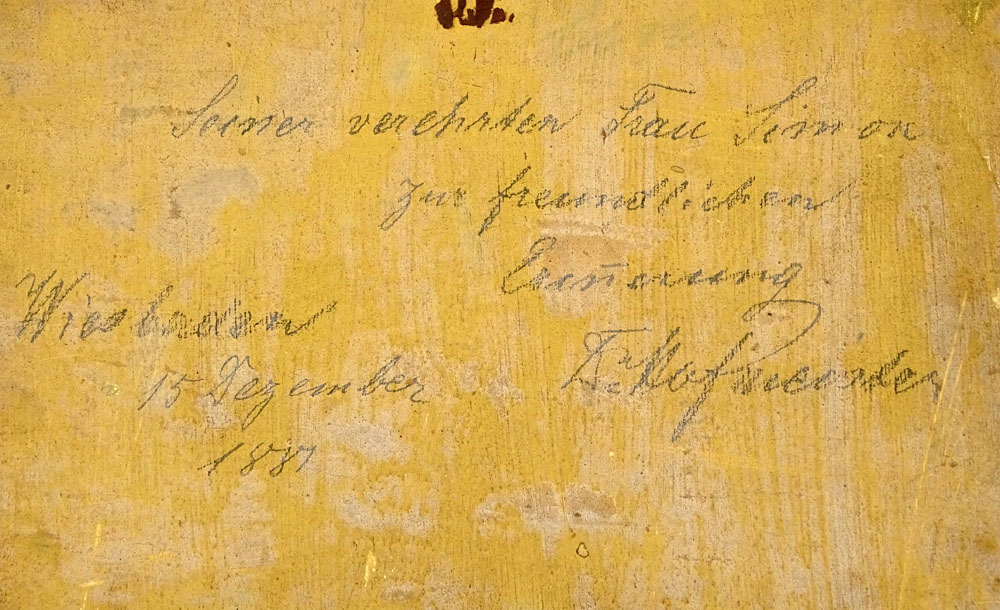 Seiner verehrten Frau Simon
zur freundlichen
Erinnerung
Wiesbaden
15 Dezember
1887